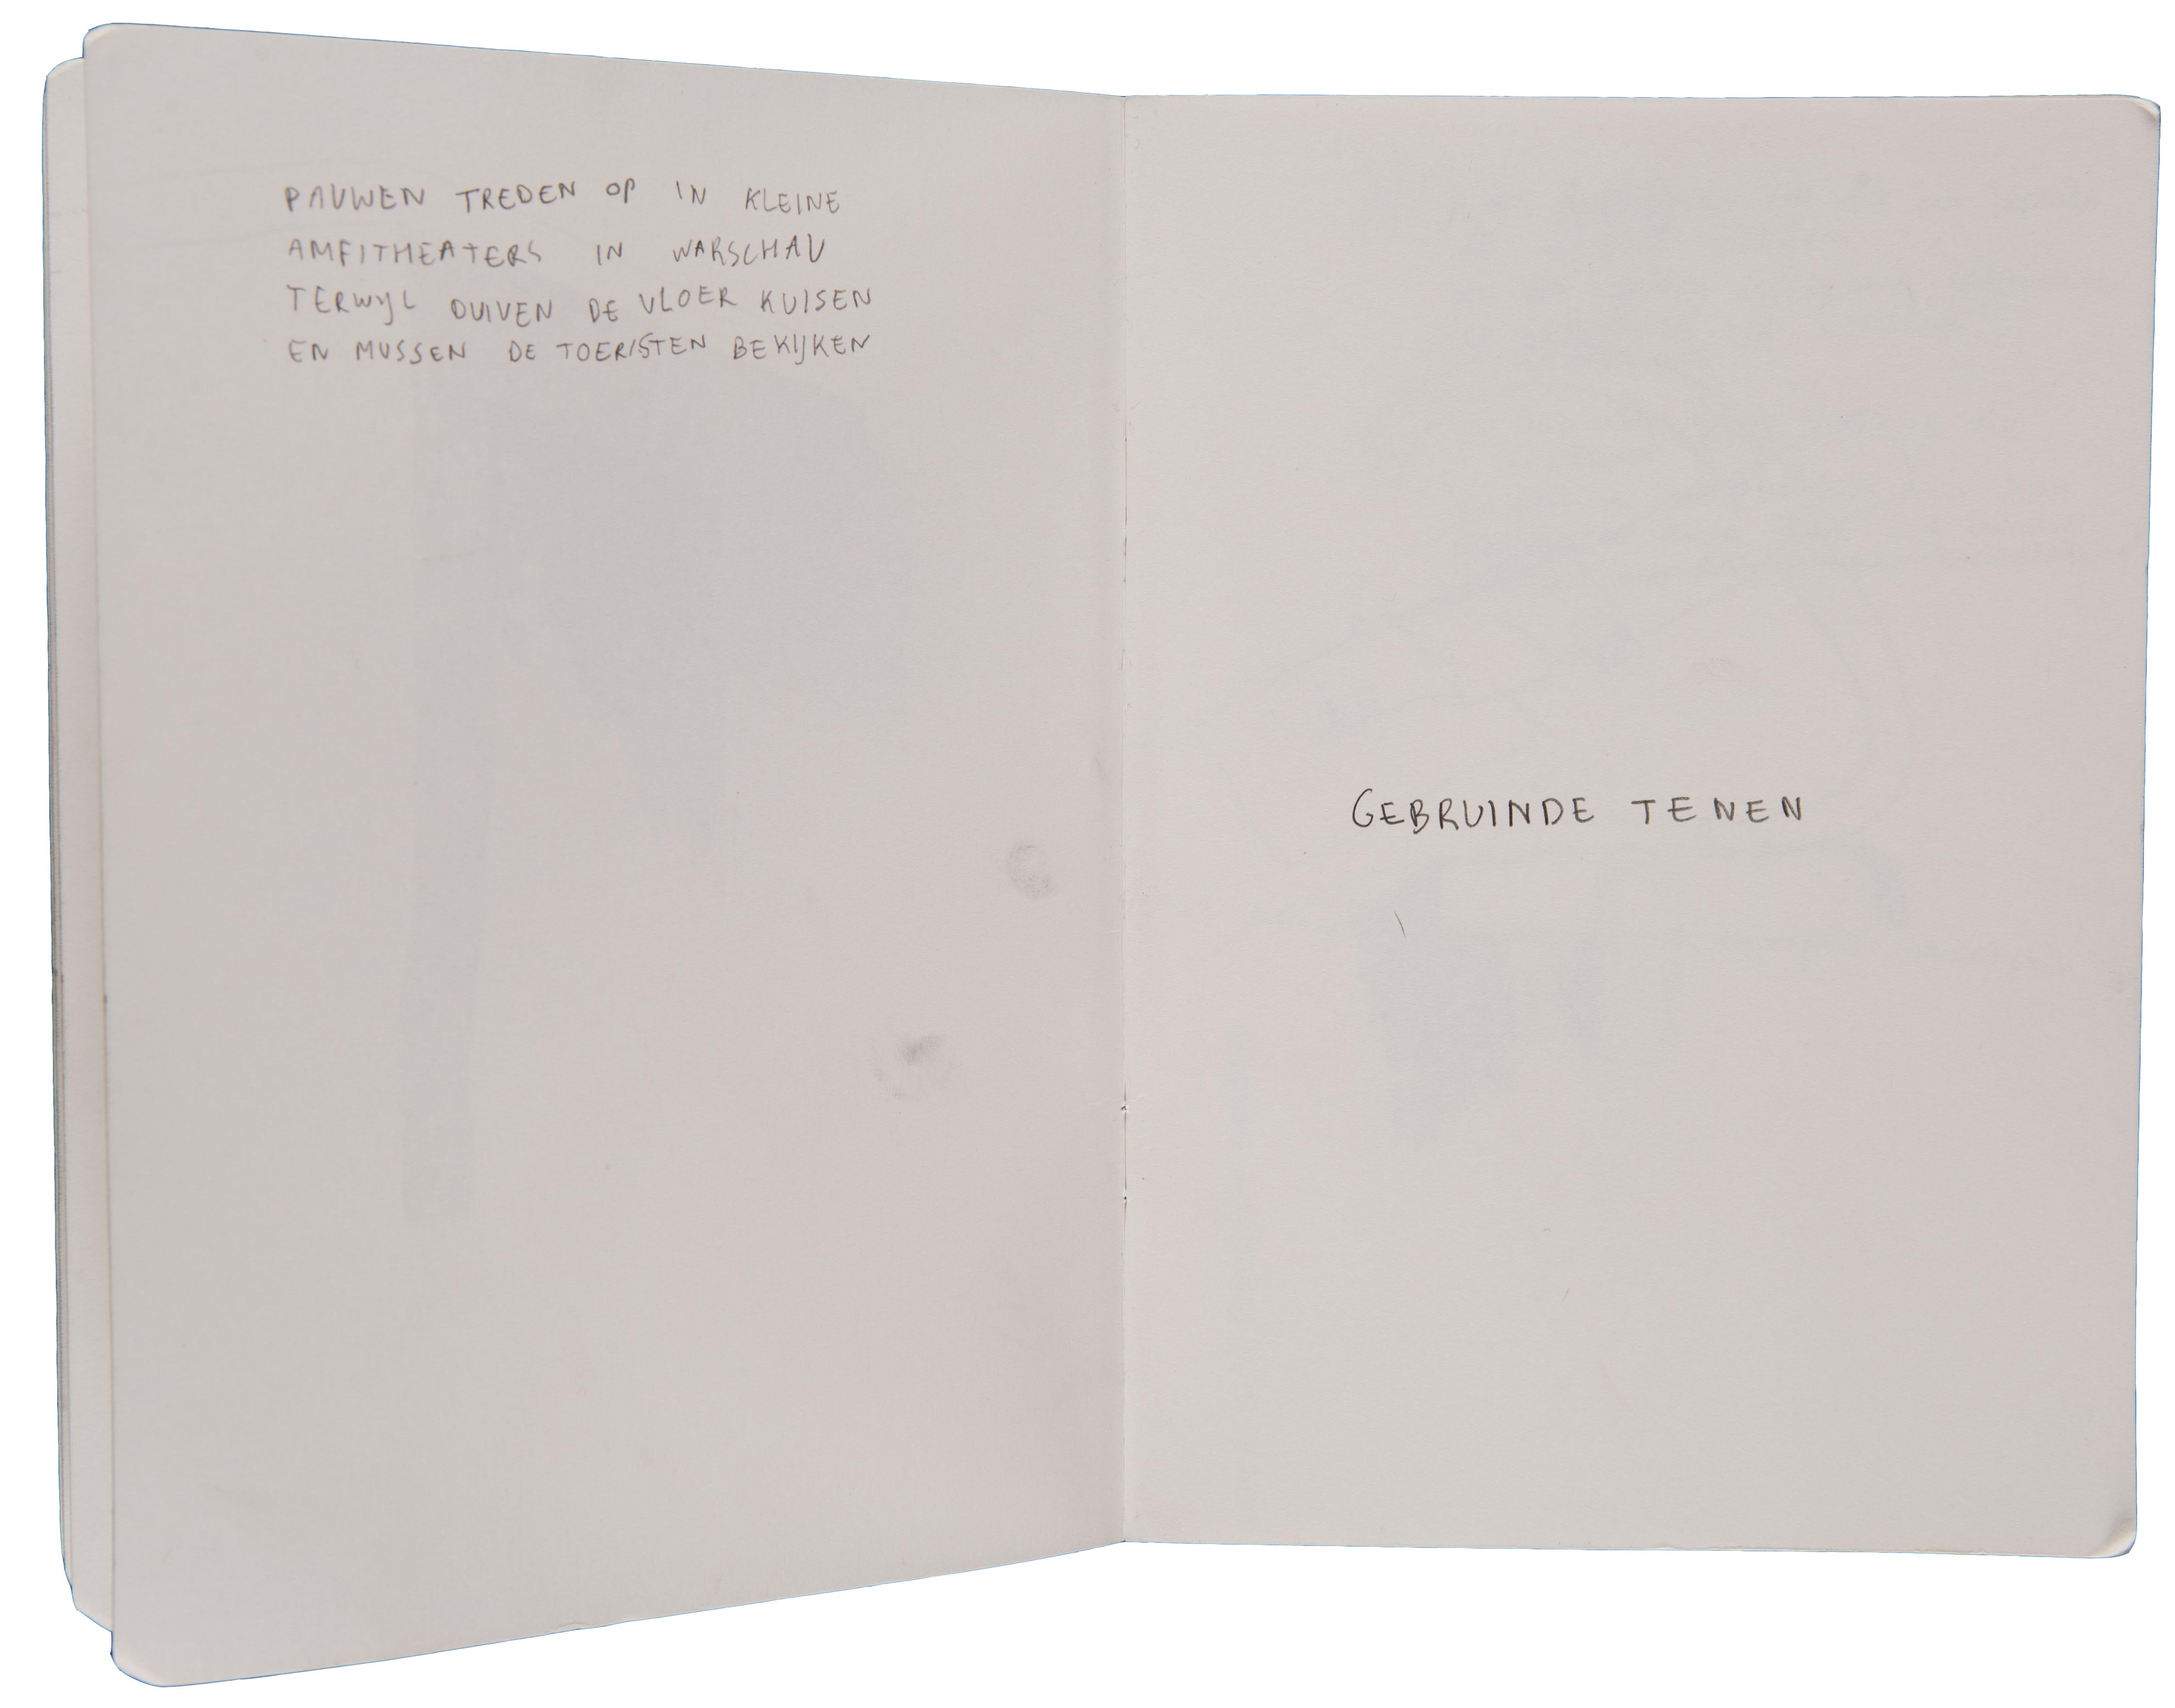 PAUWEN TREDEN OP IN KLEINE
AMFITHEATERS IN WARSCHAU
TERWIJL DUIVEN DE VLOER KUISEN
EN MUSSEN DE TOERISTEN BEKIJKEN
GEBRUINDE TENEN